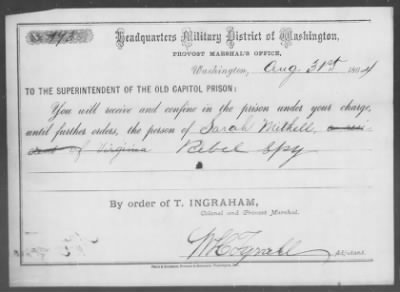 No. 493.
Headquarters Military District of Washington,
PROVOST MARSHAL'S OFFICE,
Washington, Aug. 31st 1864
TO THE SUPERINTENDENT OF THE OLD CAPITOL PRISON:
You will receive and confine in the prison under your charge,
until further orders, the person of Sarah Mitchell, a resi-
dent of Virginia Rebel Spy
By order of T. INGRAHAM,
Colonel and Provost Marshal.
Adjutant.